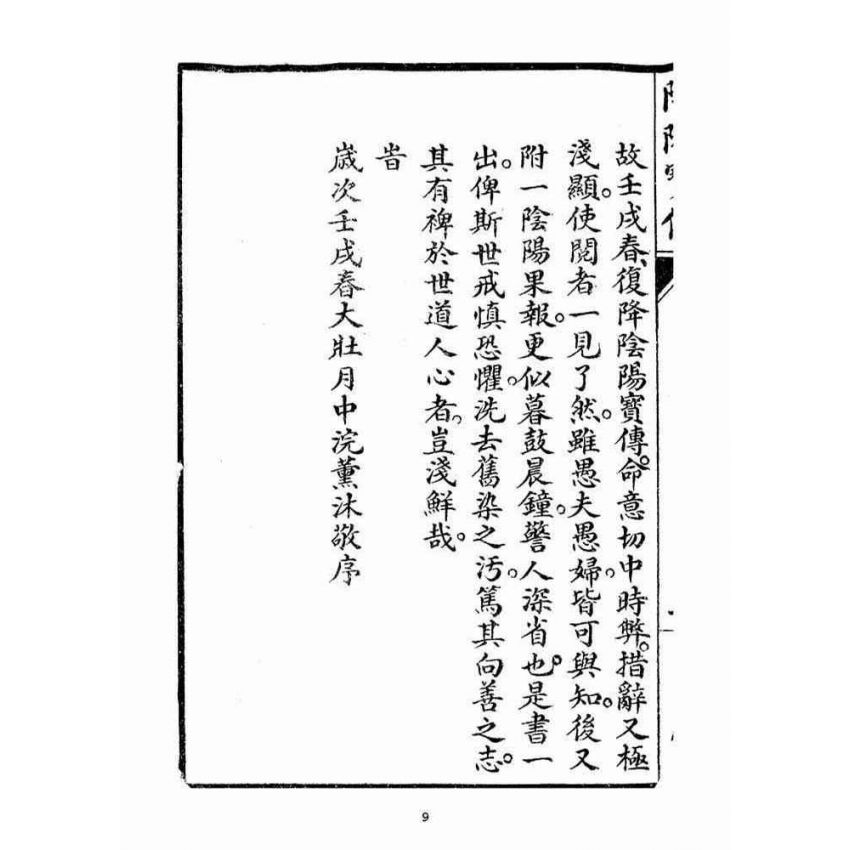 故壬戌春、復降陰陽寶傳。命意切中時弊。措辭又極
淺顯。使閱者一見了然。雖愚夫愚婦。皆可與知。後又
附一陰陽果報。更似暮鼓晨鐘。警人深省也。是書一
出。俾斯世戒慎恐懼。洗去舊染之污。篤其向善之志。
其有裨於世道人心者、豈淺鮮哉。
旹
歲次壬戌春大壯月中浣薰沐敬序
9